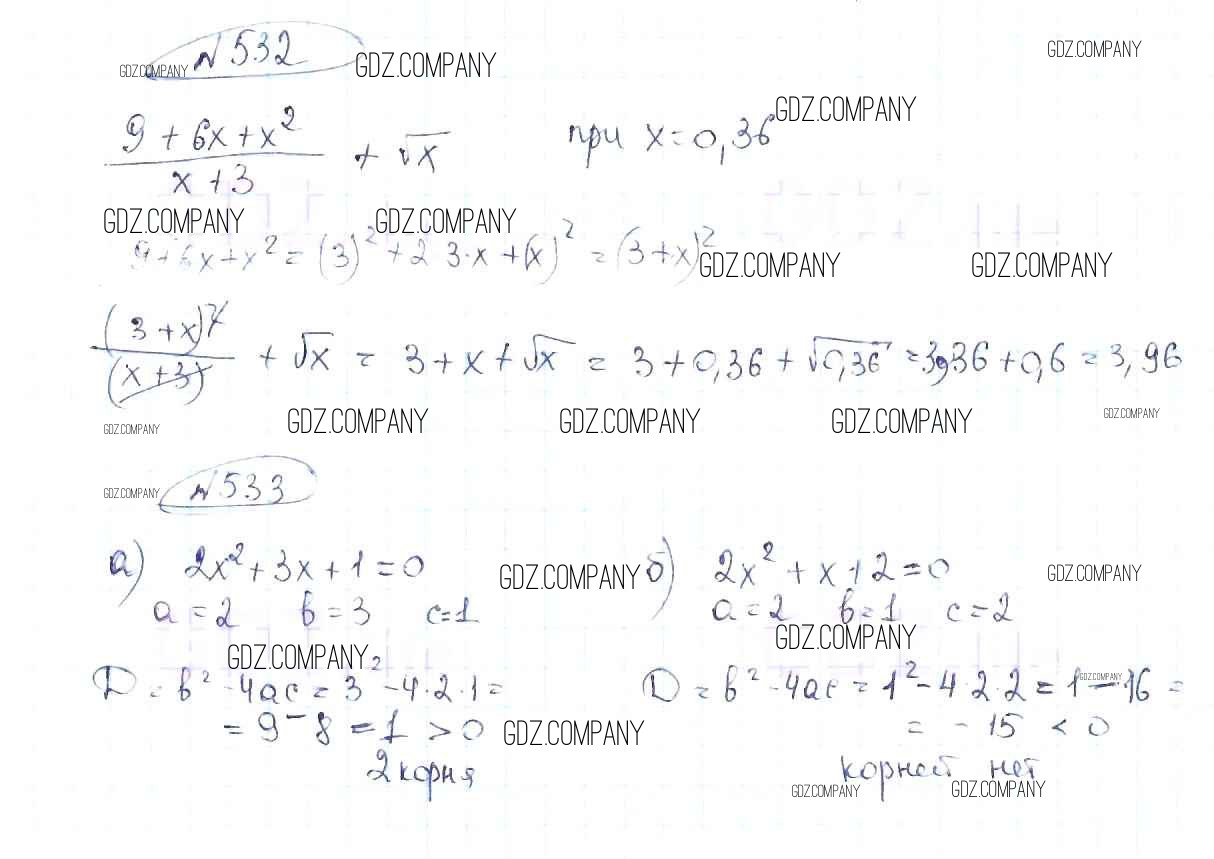 №532
GDZ.COMPANY GDZ.COMPANY GDZ.COMPANY
GDZ.COMPANY
(9 + 6x + x²)/(x + 3) + √x при x = 0,36
GDZ.COMPANY GDZ.COMPANY
9 + 6x + x² = (3)² + 2·3·x + (x)² = (3 + x)²
GDZ.COMPANY GDZ.COMPANY
(3 + x)²/(x + 3) + √x = 3 + x + √x = 3 + 0,36 + √0,36 = 3,36 + 0,6 = 3,96
GDZ.COMPANY GDZ.COMPANY GDZ.COMPANY GDZ.COMPANY GDZ.COMPANY
GDZ.COMPANY №533
а) 2x² + 3x + 1 = 0
a = 2 b = 3 c = 1
GDZ.COMPANY
D = b² - 4ac = 3² - 4·2·1 =
= 9 - 8 = 1 > 0
2 корня
GDZ.COMPANY GDZ.COMPANY
б) 2x² + x + 2 = 0
a = 2 b = 1 c = 2
GDZ.COMPANY
GDZ.COMPANY
D = b² - 4ac = 1² - 4·2·2 = 1 - 16 =
= - 15 < 0
GDZ.COMPANY
корней нет
GDZ.COMPANY GDZ.COMPANY